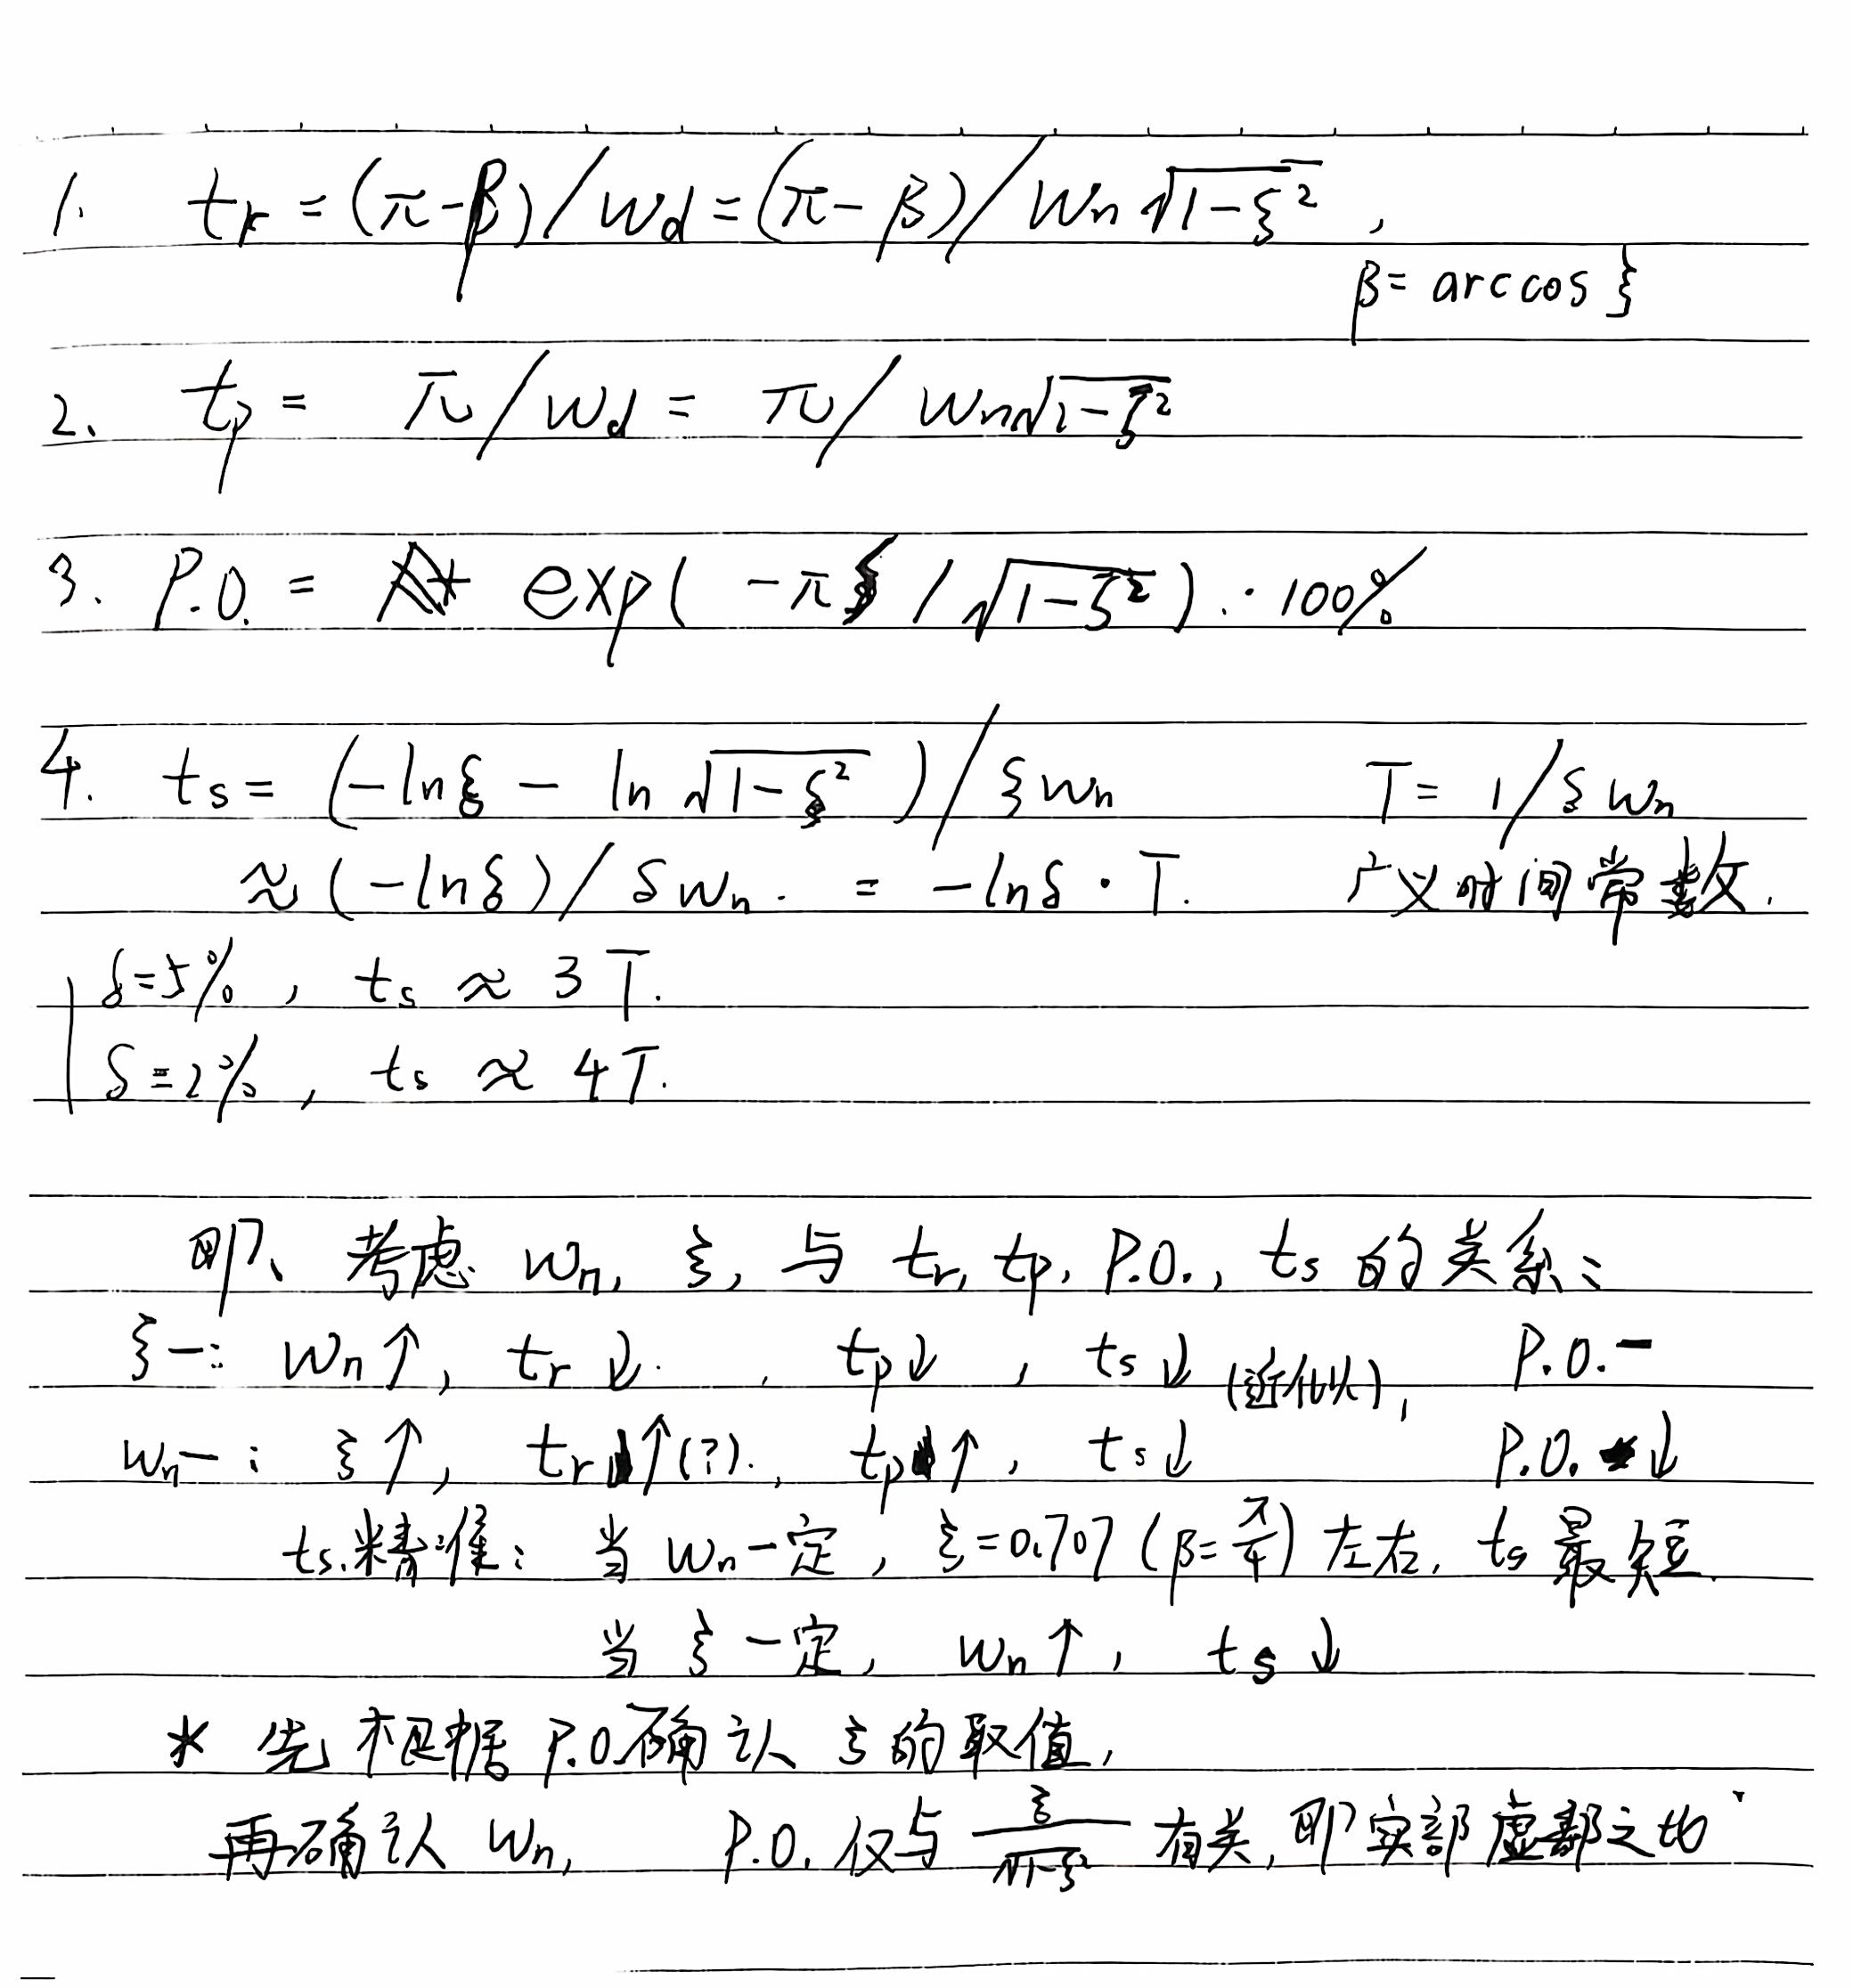 1. tr = (π-β)/wd = (π-β)/wn√1-ξ² ,
β= arccos ξ
2、 tp = π/wd = π/ wn√1-ξ²
3. P.O. = exp( -πξ /√1-ξ² ) · 100%
4. ts = (-lnδ - ln √1-ξ² )/ξwn T= 1/ξwn
≈ (-lnδ)/ξwn. = -lnδ · T. 广义时间常数.
δ=5% , ts ≈ 3T.
δ=2% , ts ≈ 4T.
即、考虑 wn, ξ, 与 tr, tp, P.O., ts 的关系:
ξ一: wn↑, tr↓. , tp↓ , ts↓(近似), P.O.一
wn一: ξ↑, tr↑(?)., tp↑, ts↓ P.O.↓
ts精准: 当 wn一定, ξ=0.707 (β=π/4) 左右, ts 最短.
当 ξ 一定, wn↑, ts↓
* 先根据 P.O确认 ξ的取值,
再确认 wn, P.O. 仅与 ξ/√1-ξ² 有关,即实部虚部之比